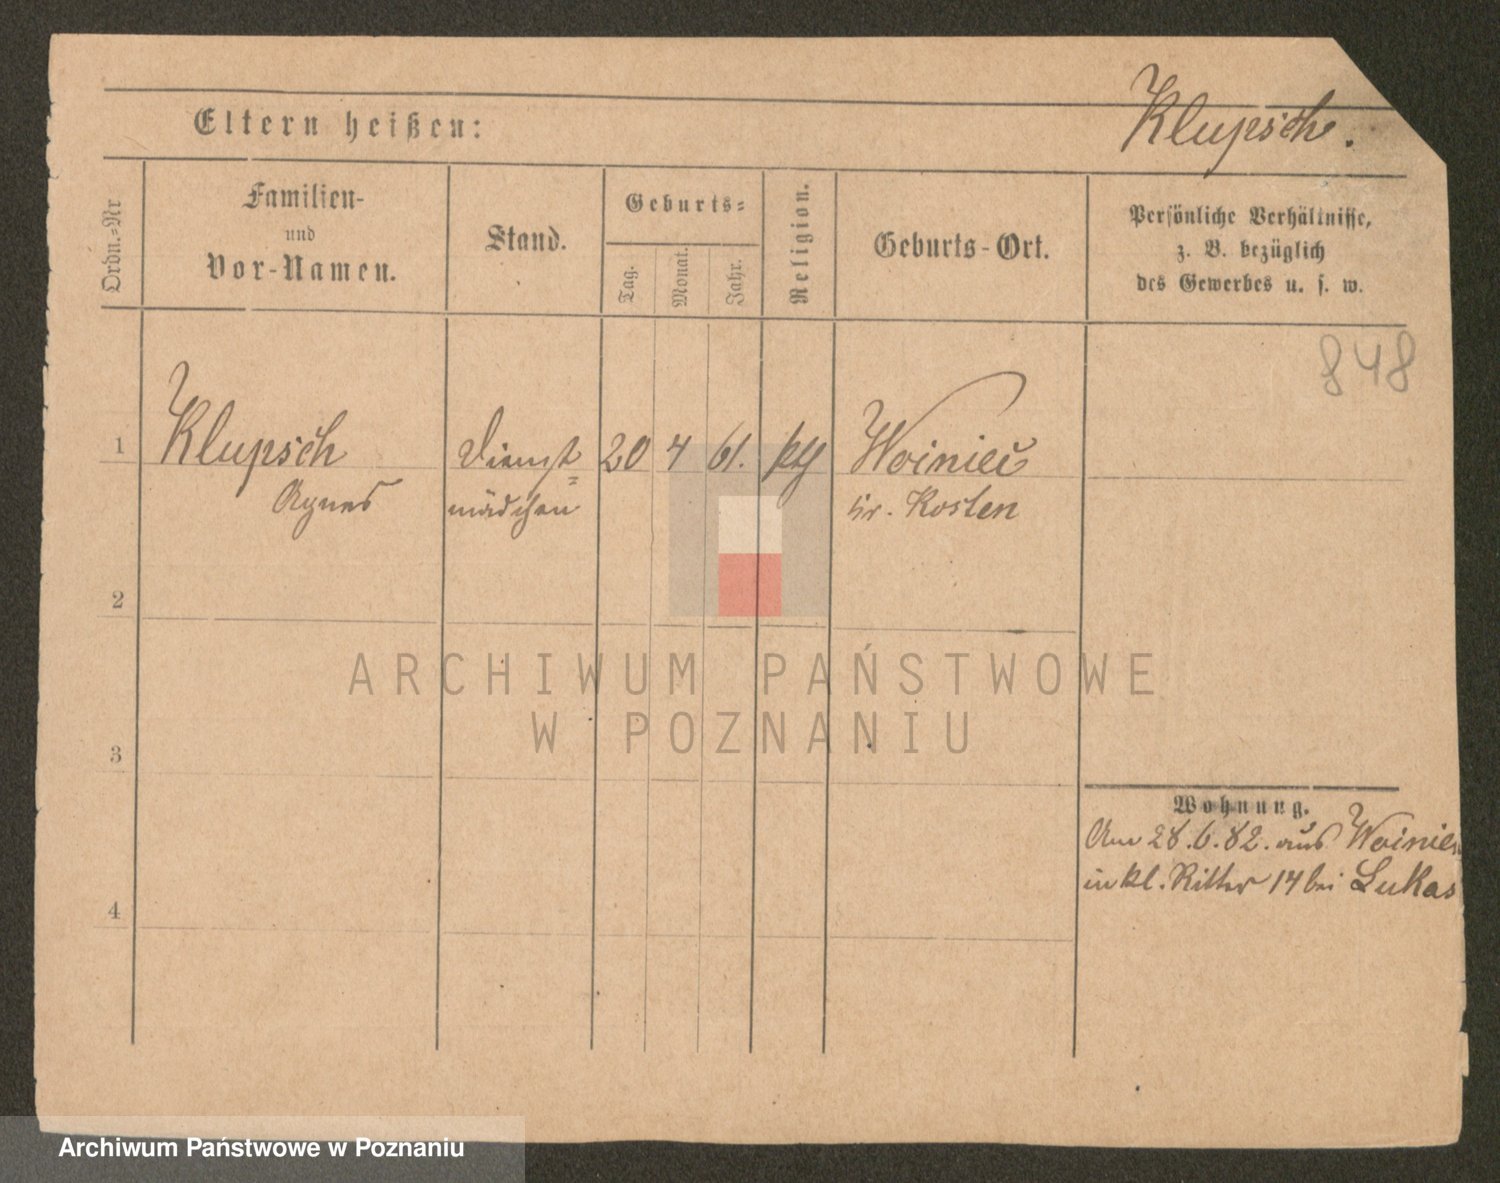 Klupsch.
Eltern heißen:
Ordn.-Nr
Familien-
und
Vor-Namen.
Stand.
Geburts-
Tag.
Monat.
Jahr.
Religion.
Geburts-Ort.
Persönliche Verhältnisse,
z. B. bezüglich
des Gewerbes u. s. w.
848
1 Klupsch Dienst= 20 4 61. Woinieć
Agnes mädchen Kr. Kosten
2
3
4
Wohnung.
Am 28.6.82. aus Woinieć
in kl. Ritter 14 bei Lukas
ARCHIWUM PAŃSTWOWE
W POZNANIU
Archiwum Państwowe w Poznaniu